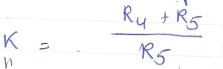 K = (R4 + R5) / R5
n